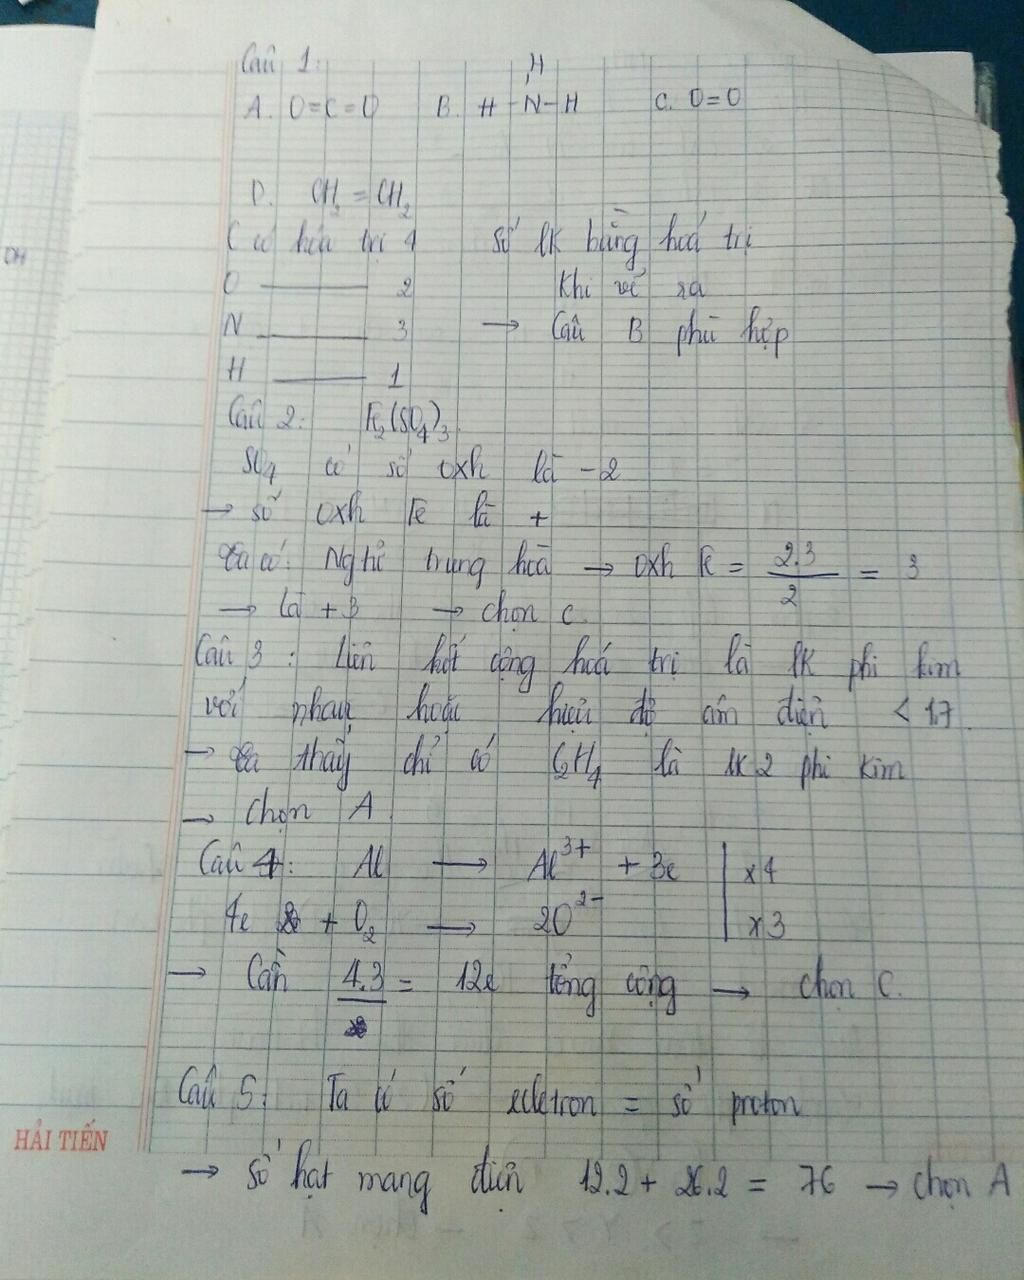 Câu 1:
H
A. O=C=O B. H-N-H C. O=O
D. CH₂ = CH₂
C có hóa trị 4 số lk bằng hoá trị
O ——— 2 khi vẽ ra
N ——— 3 → Câu B phù hợp
H ——— 1
Câu 2: Fe₂(SO₄)₃
SO₄ có số oxh là -2
→ số oxh Fe là +
Ta có: Ngtử trung hoà → oxh Fe = 2.3/2 = 3
→ là +3 → chọn C.
Câu 3: Liên kết cộng hoá trị là lk phi kim
với nhau hoặc hiệu độ âm điện < 1,7
→ Ta thấy chỉ có C₂H₄ là lk 2 phi kim
→ Chọn A
Câu 4: Al → Al³⁺ + 3e | x4
4e + O₂ → 2O²⁻ | x3
→ Cần 4.3 = 12e tổng cộng → chọn C.
Câu 5: Ta có số = số proton
HẢI TIẾN
→ số hạt mang điện 12.2 + 26.2 = 76 → chọn A